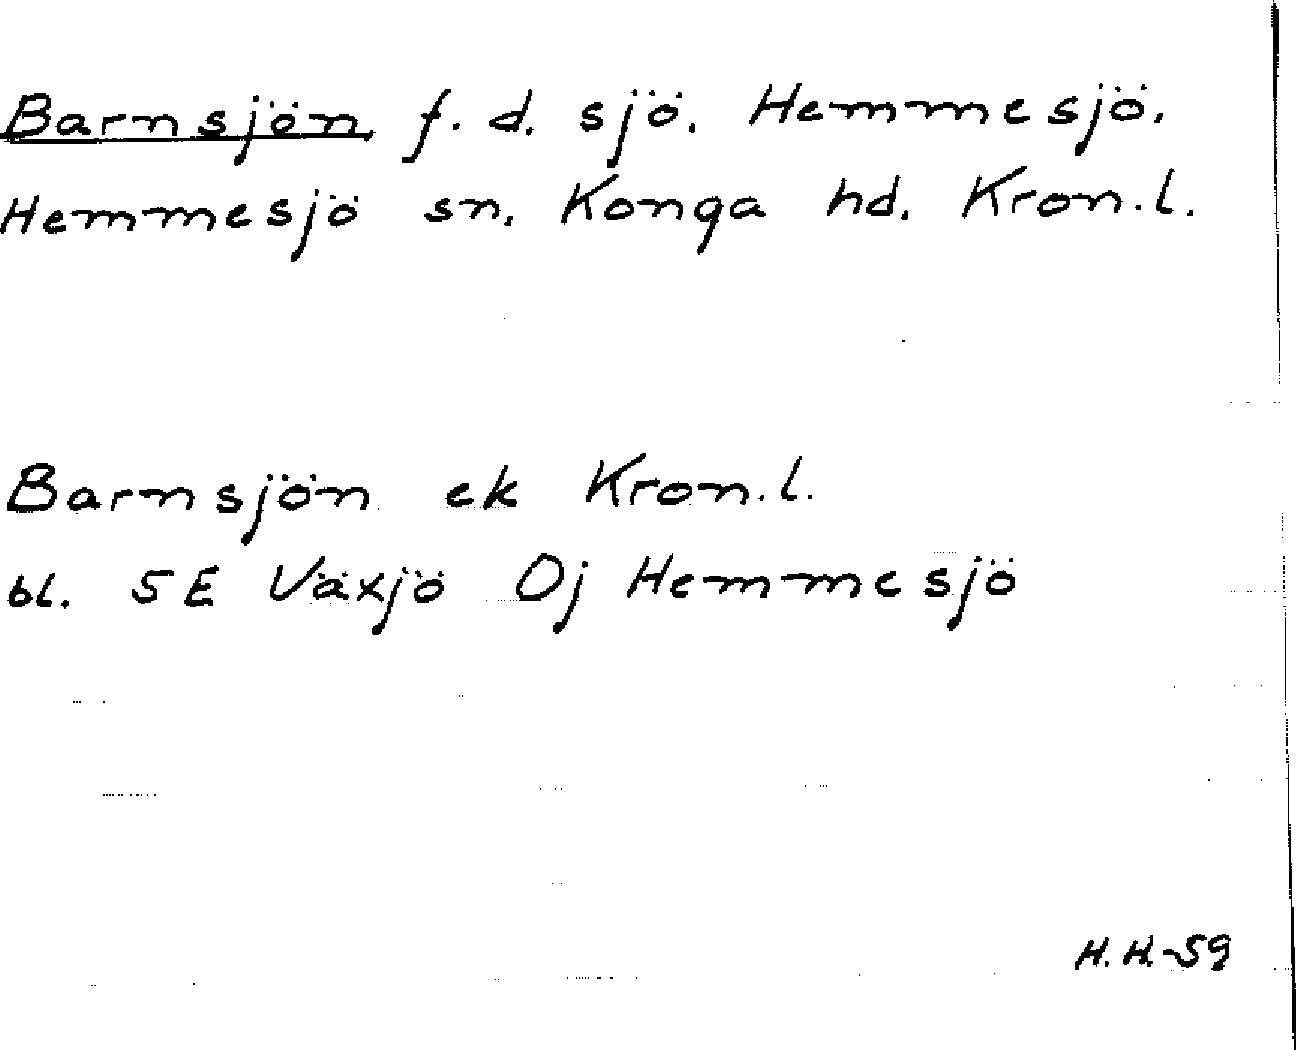 Barnsjön f. d. sjö. Hemmesjö.
Hemmesjö sn. Konga hd. Kron.l.
Barnsjön ek Kron.l.
bl. 5E Växjö Oj Hemmesjö
H.H.-59